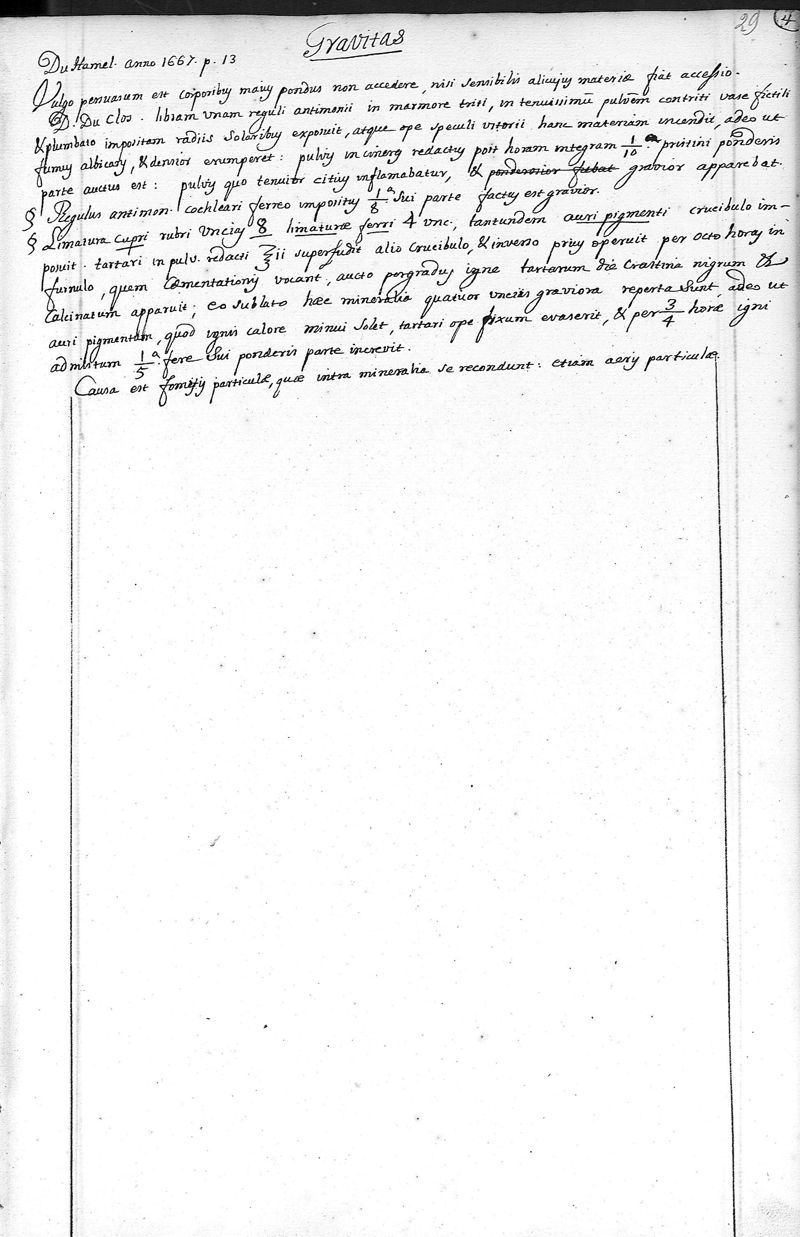 29 4
Gravitas
Du Hamel. anno 1667. p. 13
Vulgo persuasum est corporibus maius pondus non accedere, nisi sensibilis alicujus materiæ fiat accessio.
D. Du Clos. libram unam reguli antimonii in marmore triti, in tenuissimū pulvēm contriti vase fictili
& plumbato impositam radiis Solaribus exposuit, atque ope speculi ustorii hanc materiam incendit, adeo ut
fumus albicans, & densior erumperet: pulvis in cineres redactus post horam integram 1/10 a. pristini ponderis
parte auctus est: pulvis quo tenuior citius inflamabatur, & ponderosior fiebat gravior apparebat.
§ Regulus antimon. cochleari ferreo impositus 1/8 a sui parte factus est gravior.
§ Limatura Cupri rubri Uncias 8 limaturæ ferri 4 unc, tantundem auri pigmenti crucibulo im-
posuit. tartari in pulv. redacti ℥ii superfudit alio Crucibulo, & inverso prius operuit per octo horas in
furnulo, quem Cæmentationis vocant, aucto per gradus igne tartarum die Crastina nigrum &
Calcinatum apparuit; eo sublato hæc mineralia quatuor unciis graviora reperta sunt, adeo ut
auri pigmentum, quod ignis calore minui solet, tartari ope fixum evaserit, & per 3/4 horæ igni
admotum 1/5 a. fere sui ponderis parte increvit.
Causa est fomitis particulæ, quæ intra mineralia se recondunt: etiam aeris particulæ